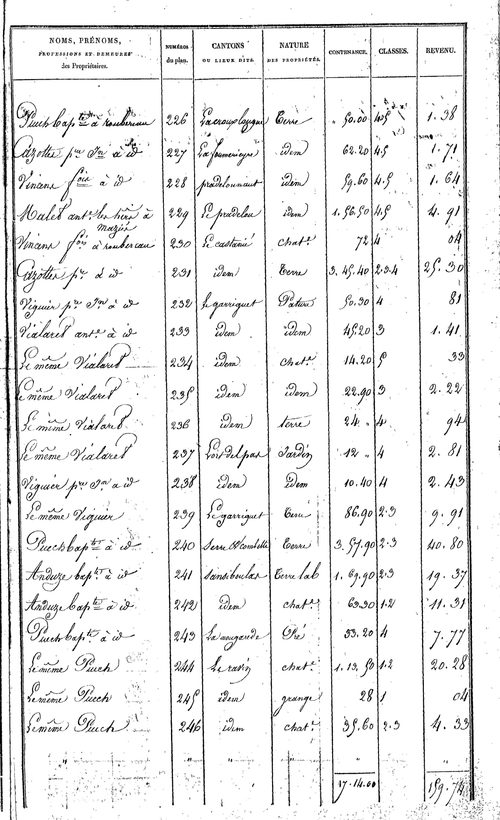 NOMS, PRÉNOMS, PROFESSIONS ET DEMEURES des Propriétaires. NUMÉROS du plan. CANTONS OU LIEUX DITS. NATURE DES PROPRIÉTÉS. CONTENANCE. CLASSES. REVENU.
Puech bap.te à roubereau 226 Terre 50.00 4.5 1.38
Cazottes p.re Jn à id 227 idem 62.20 4.5 1.71
Vincens f.ois à id 228 pradelounaut idem 59.60 4.5 1.64
Malet ant.e héritière à mazies 229 Le pradelou idem 1.56.50 4.5 4.91
Vincens f.ois à roubereau 230 Le castanié chat.e 72 4 04
Cazottes p.re à id 231 idem Terre 3.45.40 2.3.4 25.30
Viguier p.re Jn à id 232 Le garriguet Pature 50.30 4 81
Vialaret ant.e à id 233 idem idem 45.20 3 1.41
Le même Vialaret 234 idem chat.e 14.20 5 33
Le même Vialaret 235 idem idem 22.90 3 2.22
Le même Vialaret 236 idem terre 24 4 94
Le même Vialaret 237 Jardin 12 4 2.81
Viguier p.re Jn à id 238 idem idem 10.40 4 2.43
Le même Viguier 239 Le garriguet Terre 86.90 2.3 9.91
Puech bap.te à id 240 Terre 3.57.90 2.3 40.80
Anduze bap.te à id 241 sansiboulas Terre lab 1.69.90 2.3 19.37
Anduze bap.te à id 242 idem chat.e 63.30 1.2 11.31
Puech bap.te à id 243 Pré 33.20 4 7.77
Le même Puech 244 Le rasin chat.e 1.13.50 1.2 20.28
Le même Puech 245 idem grange 28 1 04
Le même Puech 246 idem chat.e 35.60 2.3 4.33
17.14.00 159.74